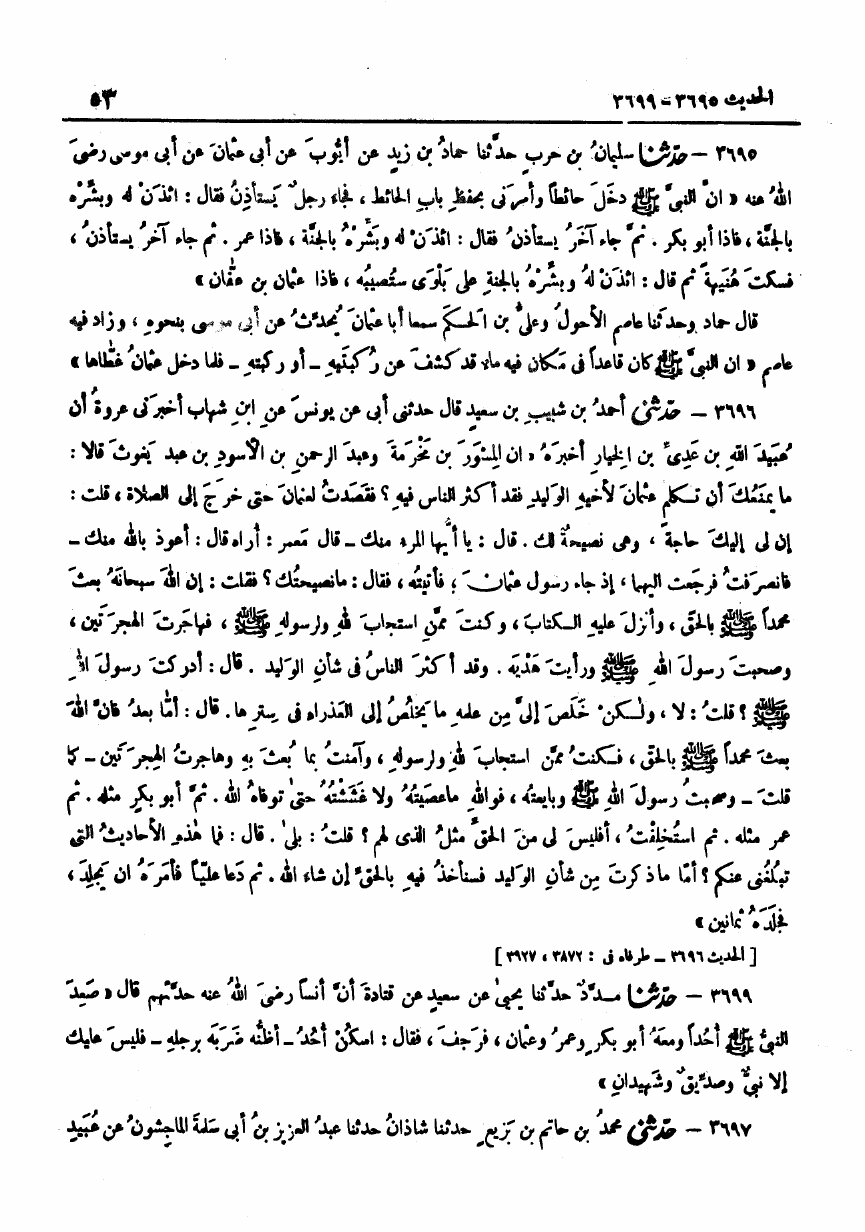 الحديث ٣٦٩٥ - ٣٦٩٩ ٥٣
٣٦٩٥ – حدّثنا سليمانُ بن حربٍ حدَّثنا حمادُ بن زيدٍ عن أيُّوبَ عن أبى عثمانَ عن أبى موسى رضىَ
اللهُ عنه « انَّ النبىَّ ﷺ دخَلَ حائطاً وأمرَنى بحفظِ بابِ الحائط ، فجاء رجلٌ يَستأذِنُ فقال : ائذَنْ له وبشِّرْه
بالجنَّة ، فاذا أبو بكر . ثمَّ جاء آخَرُ يستأذنُ فقال : ائذَنْ له وبَشِّرْهُ بالجنَّة ، فاذا عمر . ثم جاء آخرُ يستأذنُ ،
فسكتَ هُنَيهةً ثم قال : ائذَنْ لهُ وبشِّرْهُ بالجنةِ على بَلْوَى ستُصيبُه ، فاذا عثمان بن عفّان »
قال حماد وحدثنا عاصم الأحولُ وعلىُّ بن الحَكَم سمعا أبا عثمانَ يُحدِّثُ عن أبى موسى بنحوهِ ، وزاد فيه
عاصم « ان النبىَّ ﷺ كان قاعداً فى مَكان فيه ماء قد كشفَ عن رُكبتَيهِ – أو ركبتهِ – فلما دخل عثمانُ غطّاها »
٣٦٩٦ – حدّثنى أحمدُ بن شبيبِ بن سعيدٍ قال حدثنى أبى عن يونسَ عنِ ابنِ شهاب أخبرَنى عروةُ أن
عُبَيدَ اللهِ بن عَدِىِّ بن الخِيار أخبرَهُ « ان المِسْوَرَ بن مَخْرَمةَ وعبدَ الرحمنِ بن الأسودِ بن عبد يَغوثَ قالا :
ما يمنَعُكَ أن تكلم عثمانَ لأخيهِ الوَليدِ فقد أكثرَ الناس فيهِ ؟ فقصَدتُ لعثمانَ حتى خرجَ إلى الصلاة ، قلت :
إن لى إليكَ حاجةً ، وهى نصيحةٌ لك . قال : يا أيُّها المرء منك – قال مَعمر : أُراه قال : أعوذ بالله منك –
فانصرَفتُ فرجَعت اليهما ، إذ جاء رسول عثمانَ ، فأتيتُه ، فقال : مانصيحتُك ؟ فقلت : إن اللهَ سبحانَهُ بعثَ
محمداً ﷺ بالحقِّ ، وأنزلَ عليهِ الكتابَ ، وكنتَ ممَّنِ استجابَ للهِ ولرسولهِ ﷺ ، فهاجَرتَ الهجرَتَين ،
وصحبتَ رسولَ اللهِ ﷺ ورأيتَ هَدْيَه . وقد أكثرَ الناسُ فى شأنِ الوَليد . قال : أدركتَ رسولَ اللهِ
ﷺ ؟ قلتُ : لا ، ولكنْ خَلَصَ إلىَّ مِن علمهِ ما يَخلُصُ إلى العَذراءِ فى سِترها . قال : أمّا بعدُ فانَّ اللهَ
بعثَ محمداً ﷺ بالحقِّ ، فكنتُ ممَّنِ استجابَ للهِ ولرسولهِ ، وآمنتُ بما بُعثَ بهِ وهاجرتُ الهِجرَتَين – كما
قلتَ – وصحِبتُ رسولَ اللهِ ﷺ وبايعتُه ، فواللهِ ماعصَيتُهُ ولا غَشَشْتُهُ حتى توفاهُ الله . ثمَّ أبو بكرٍ مثله . ثم
عمر مثله . ثم استُخلِفْتُ ، أفليسَ لى منَ الحقِّ مثلُ الذى لهم ؟ قلتُ : بلى . قال : فما هٰذهِ الأحاديثُ التى
تبلُغُنى عنكم ؟ أمّا ماذكرتَ مِن شأنِ الوَليد فسنأخذُ فيهِ بالحقِّ إن شاء الله . ثم دَعا عليّاً فأمَرَهُ ان يَجلِدَ ،
فجلَدَهُ ثمانين »
[ الحديث ٣٦٩٦ – طرفاه فى : ٣٨٧٢ ، ٣٩٢٧ ]
٣٦٩٩ – حدّثنا مسدَّدٌ حدَّثنا يحيىٰ عن سعيدٍ عن قتادةَ أنَّ أنساً رضىَ اللهُ عنه حدَّثهم قال « صَعِدَ
النبىُّ ﷺ أُحُداً ومعَهُ أبو بكرٍ وعمرُ وعثمان ، فرَجفَ ، فقال : اسكُنْ أُحُدُ – أظنُّه ضَرَبَه برجلهِ – فليسَ عليك
إلا نبىٌّ وصدِّيقٌ وشَهيدانِ »
٣٦٩٧ – حدّثنى محمدُ بن حاتم بن بَزِيعٍ حدثنا شاذانُ حدثنا عبدُ العزيز بنُ أبى سَلمةَ الماجِشونُ عن عُبَيدِ